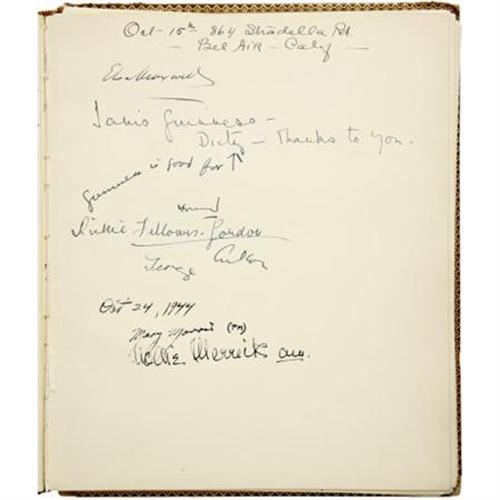 Oct - 15th 864 Stradella Rd.
- Bel Air - Calif -
Elsa Maxwell
Tanis Guinness -
Dicky - Thanks to You.
Guinness is good for ↑
Dickie Fellowes-Gordon
George Cukor
Oct 24, 1944
Mary Morris (PM)
Mollie Merrick